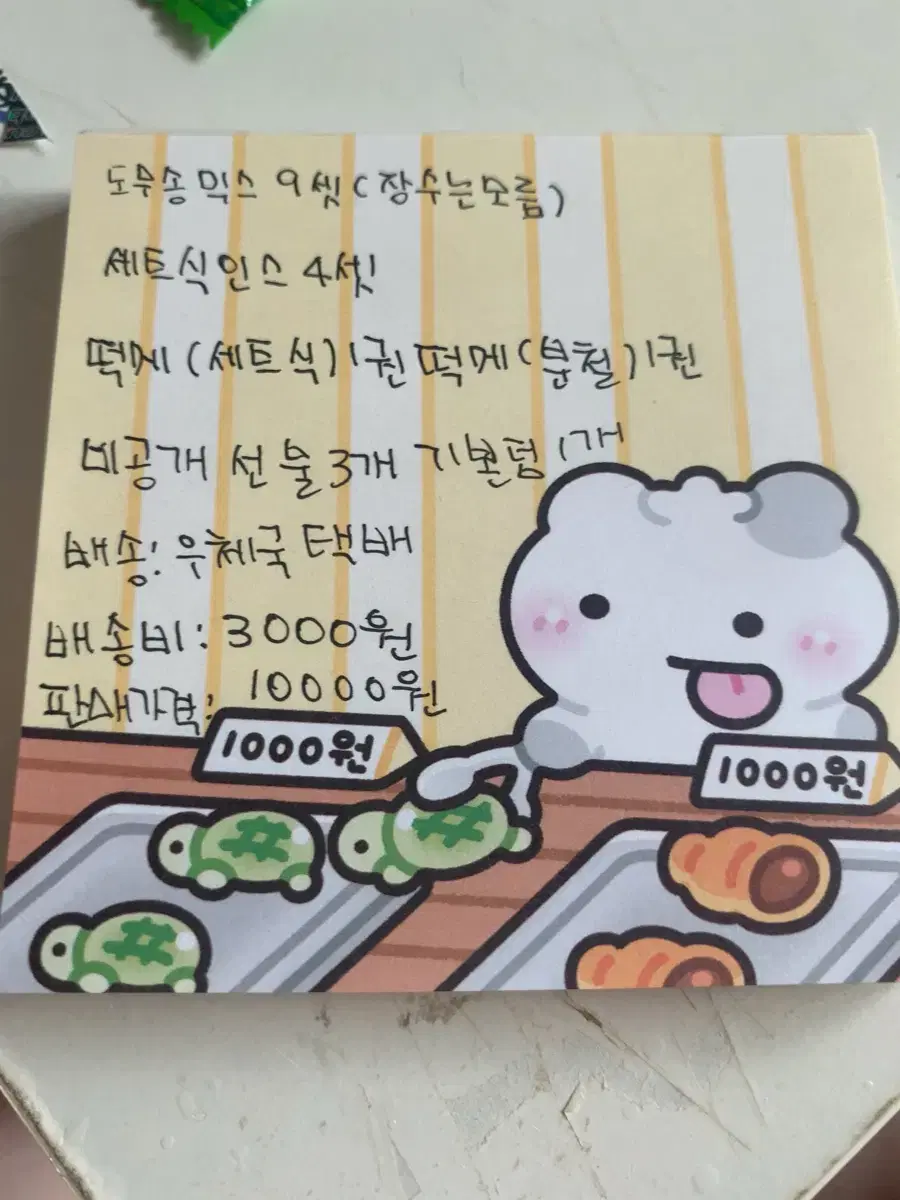 도무송 믹스 9셋(장수는모름)
세트식인스 4셋
떡메(세트식)1권 떡메(분철)1권
비공개 선물3개 기본덤 1개
배송: 우체국 택배
배송비: 3000원
판매가격: 10000원
1000원
1000원